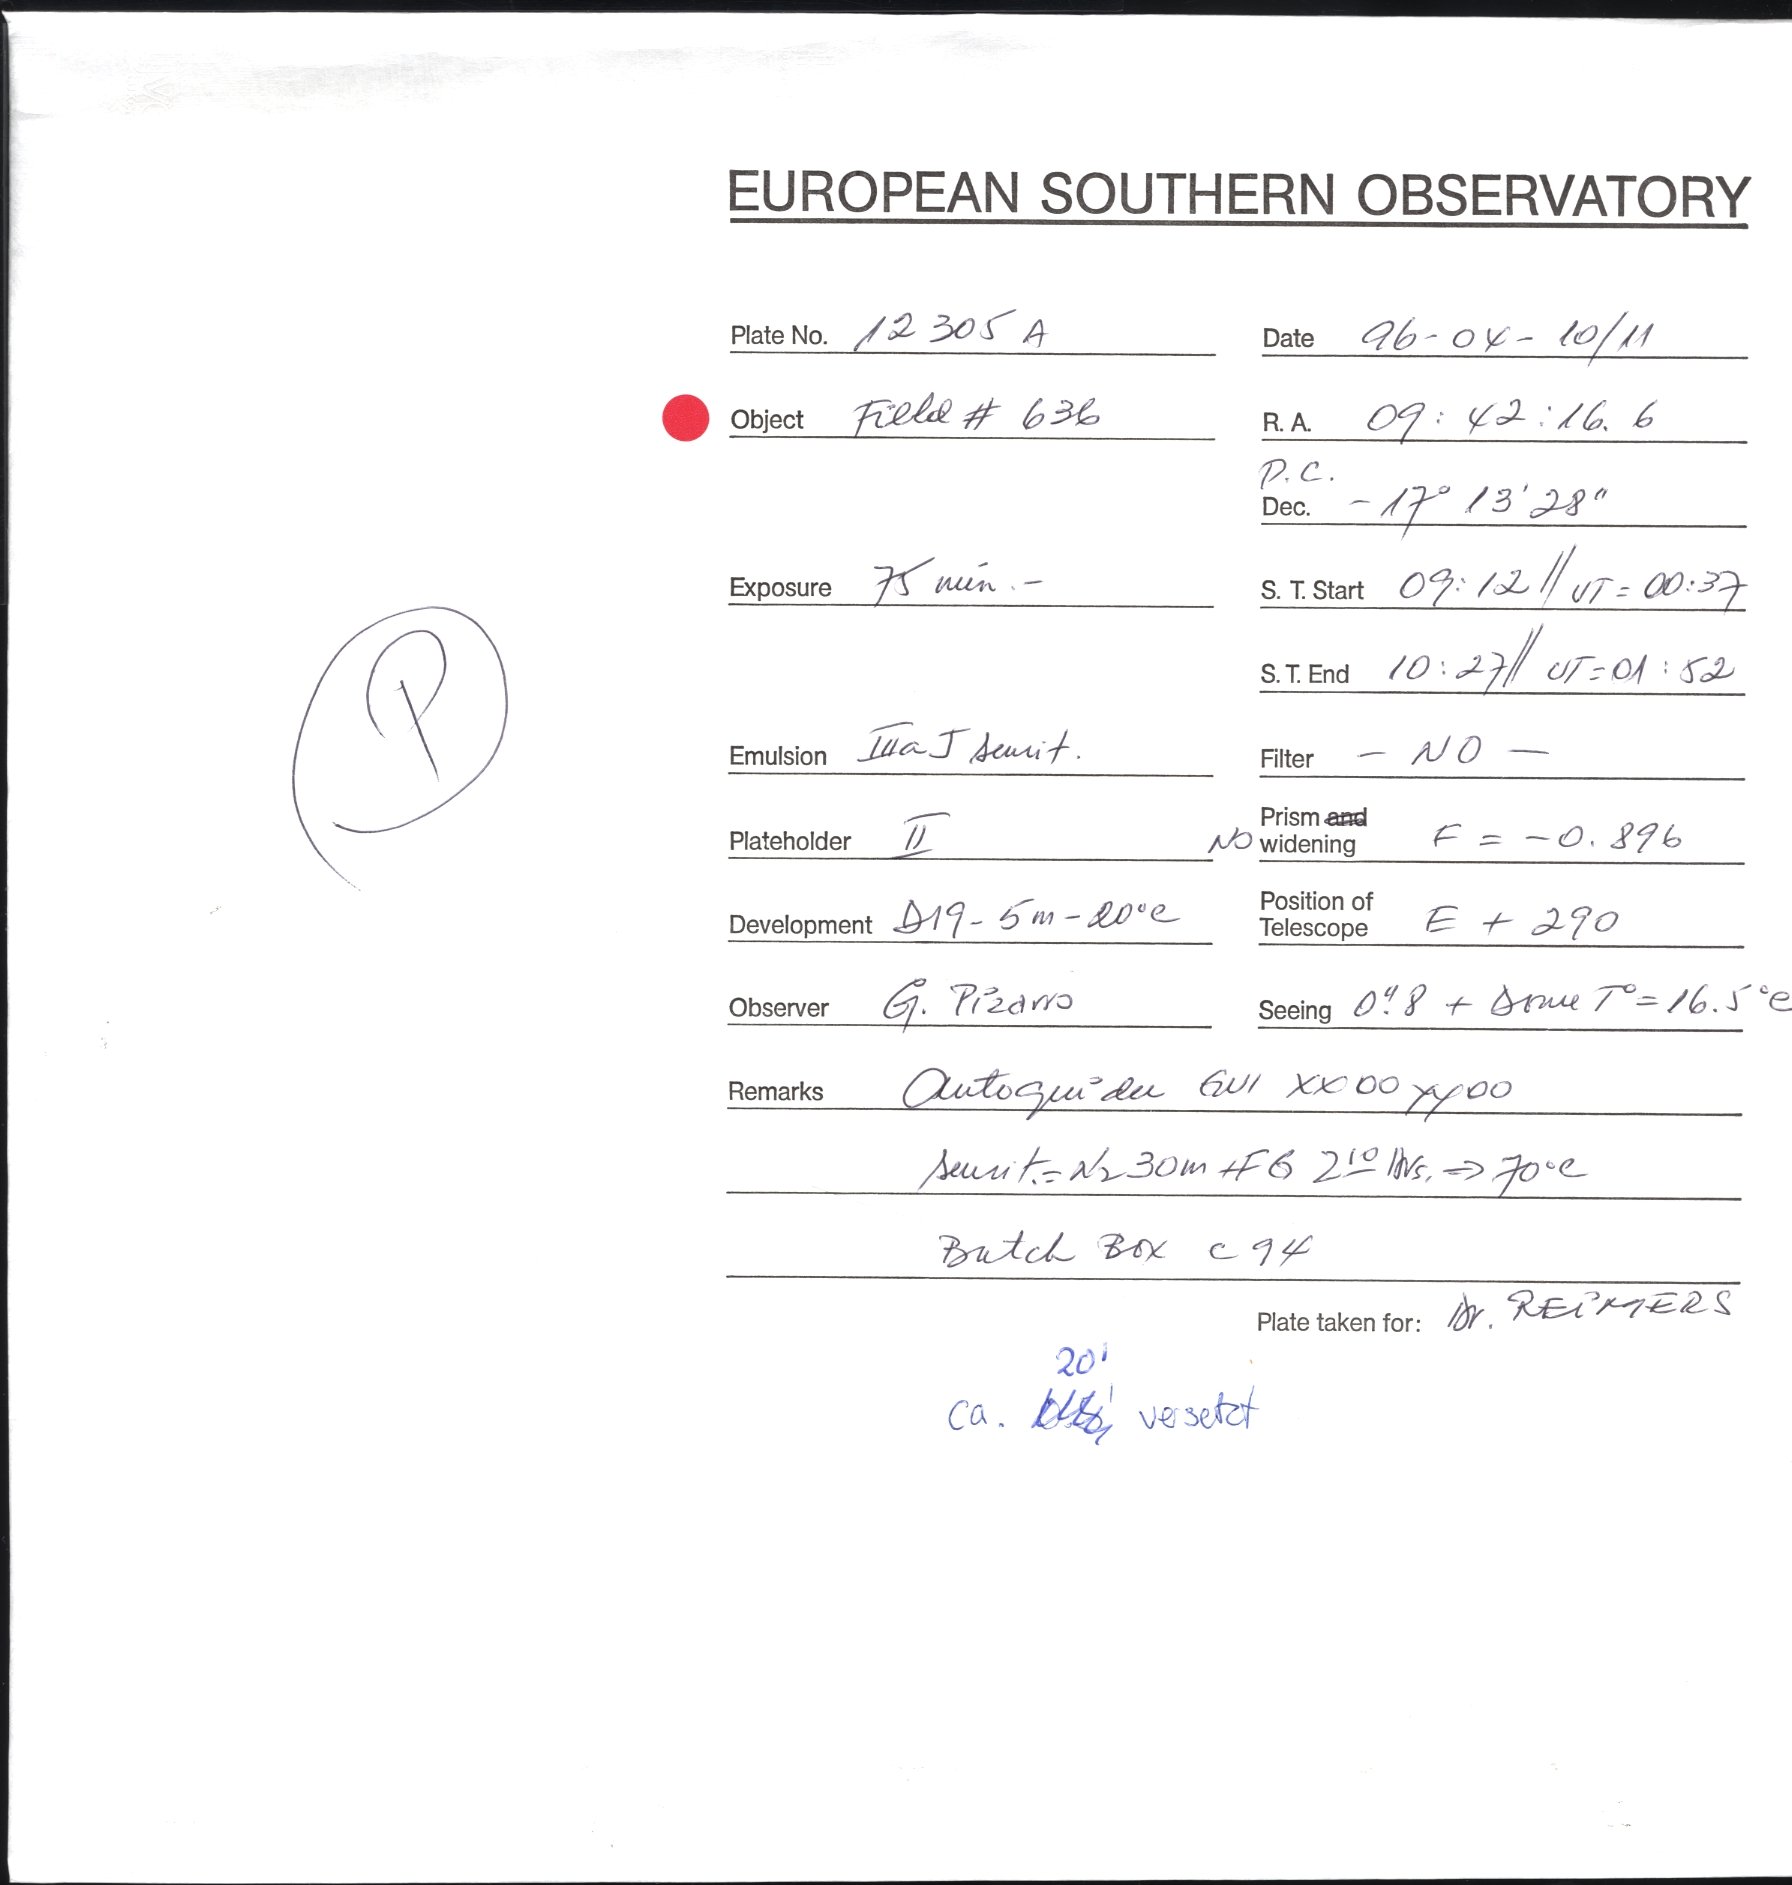 EUROPEAN SOUTHERN OBSERVATORY
Plate No. 12305 A
Date 96-04-10/11
Object Field # 636
R. A. 09:42:16.6
P.C.
Dec. -17° 13' 28"
Exposure 75 min.-
S. T. Start 09:12 // UT = 00:37
S. T. End 10:27 // UT = 01:52
P
Emulsion IIIa J sensit.
Filter - NO -
Plateholder II
NO Prism and widening F = -0.896
Development D19 - 5m - 20°C
Position of Telescope E + 290
Observer G. Pizarro
Seeing 0".8 + Dome T° = 16.5°C
Remarks Autoguider GUI XX00 YY00
sensit. = N2 30m + FG 2 10 hrs. ⇒ 70°C
Batch Box C94
Plate taken for: Dr. REIMERS
20'
ca. versetzt